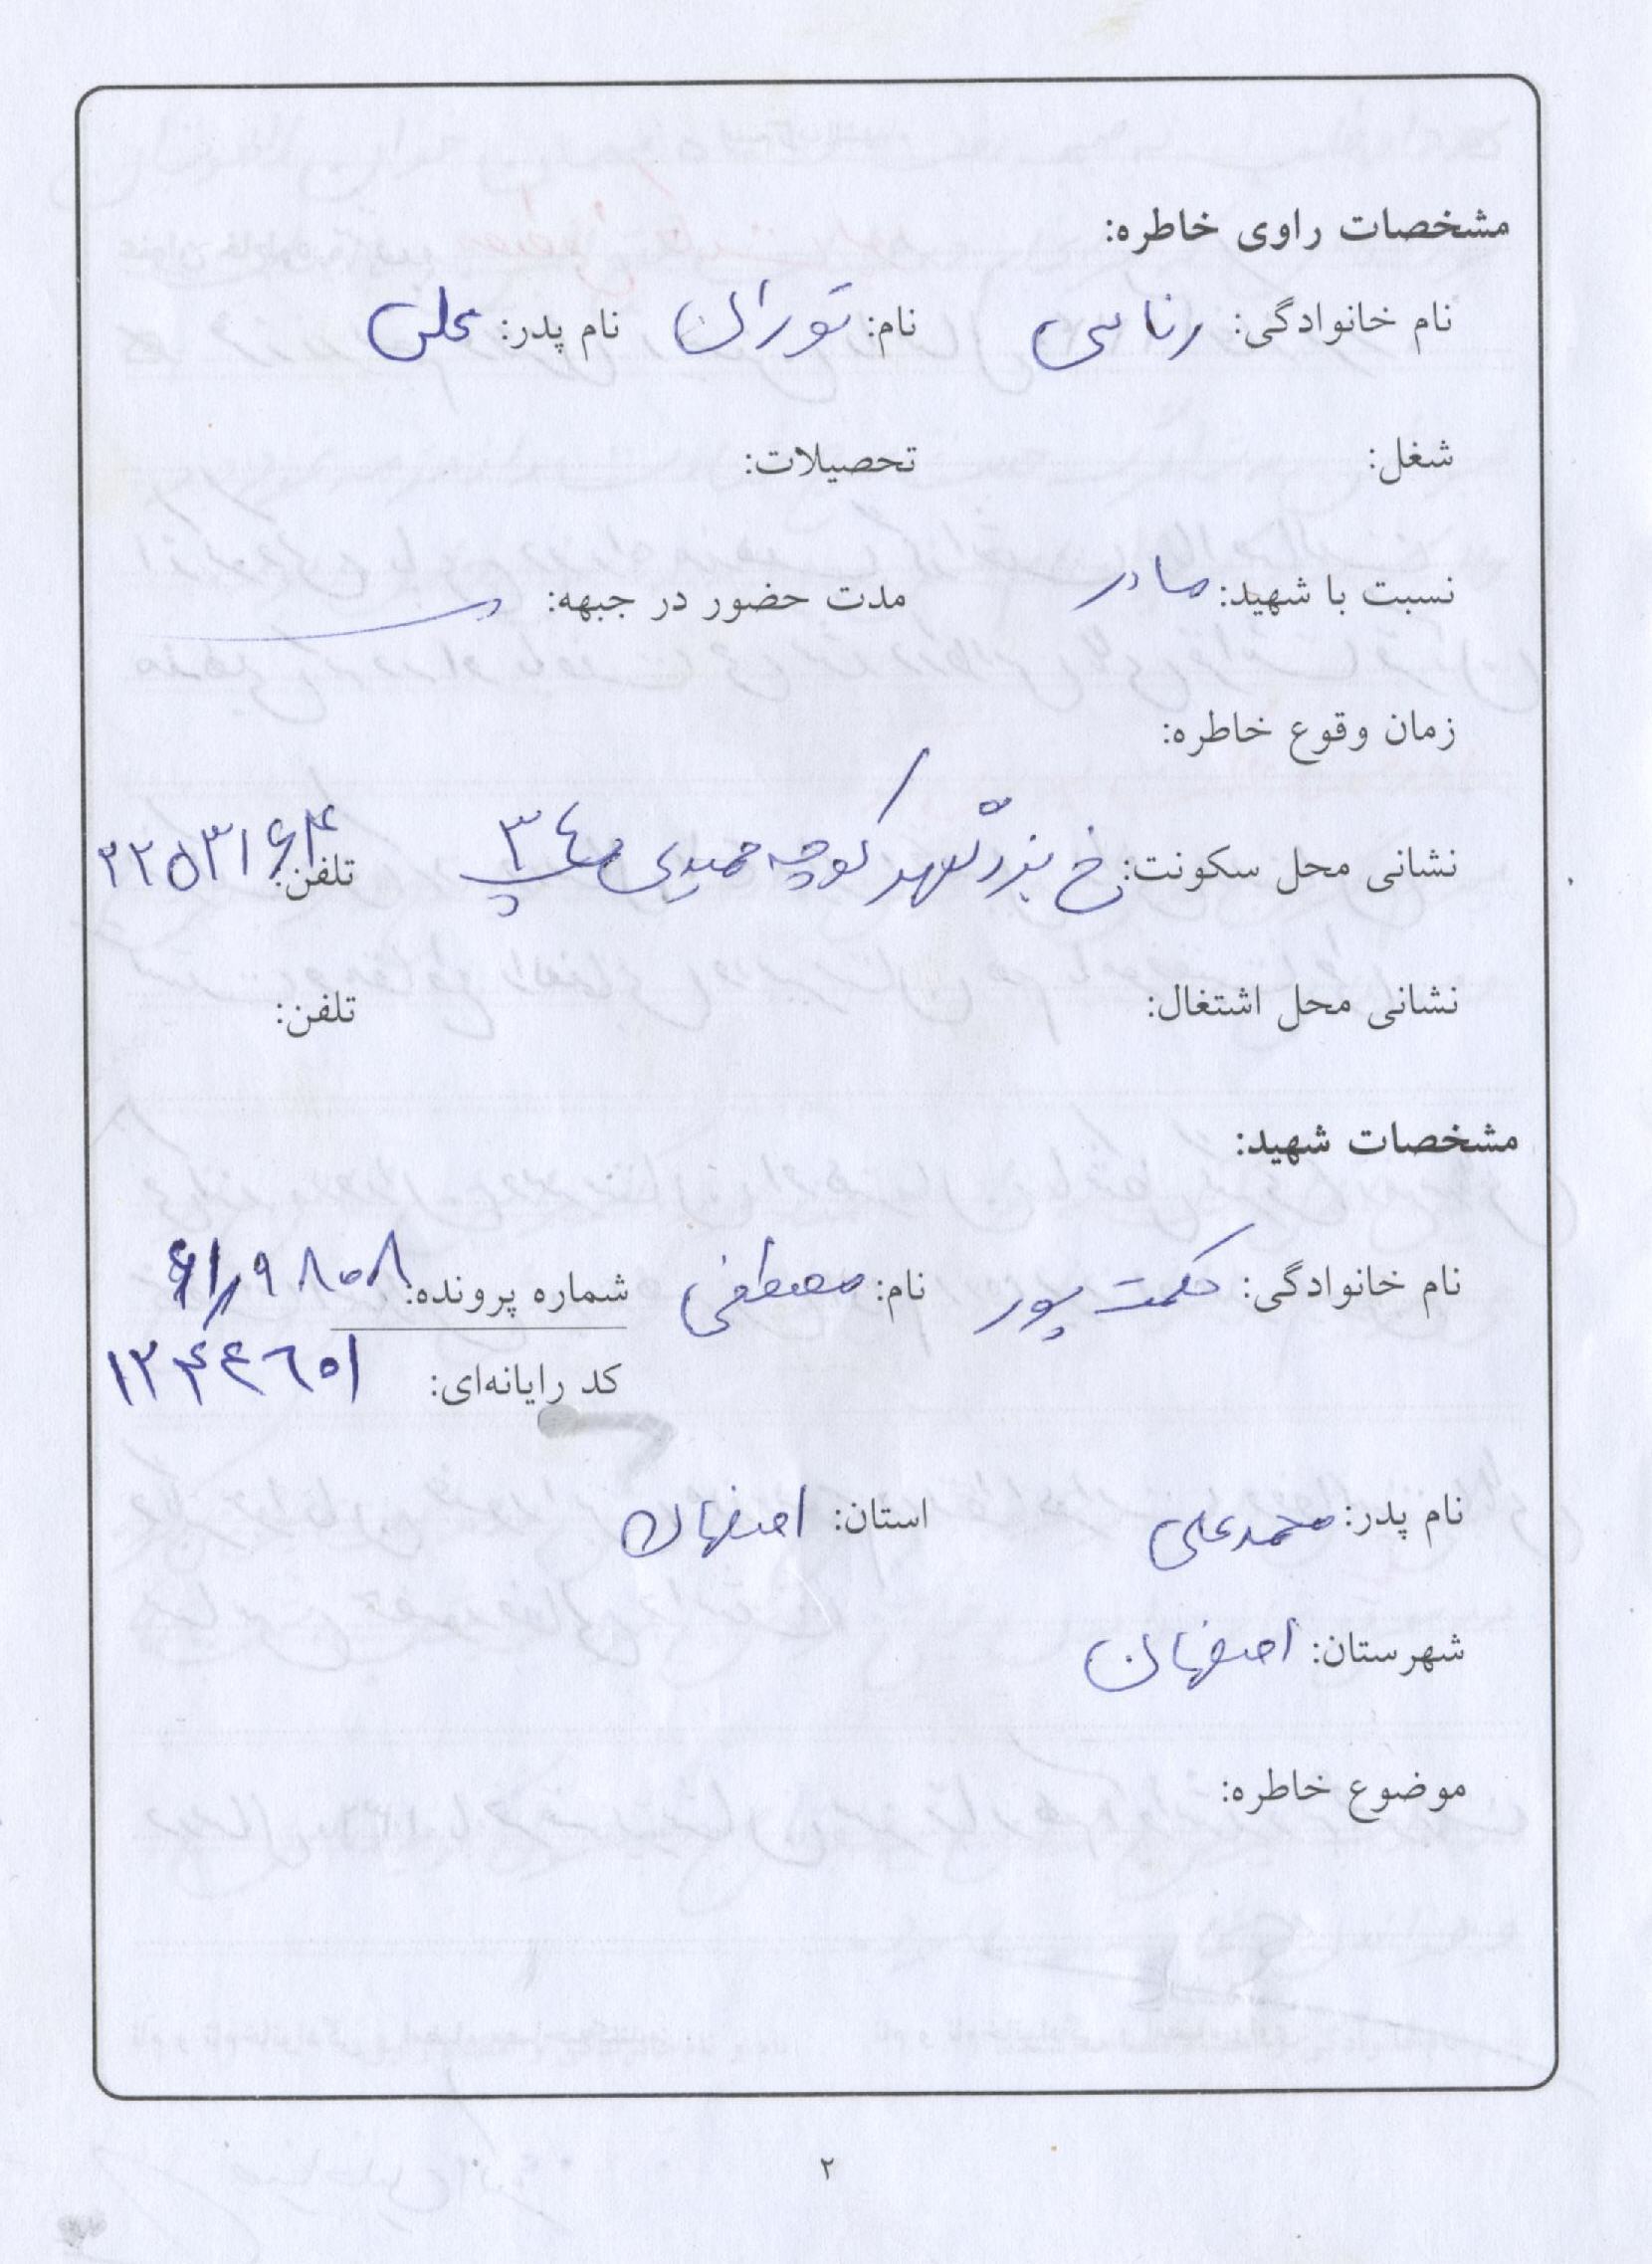 مشخصات راوی خاطره:
نام خانوادگی: رنامی نام: توران نام پدر: علی
شغل: تحصیلات:
نسبت با شهید: مادر مدت حضور در جبهه:
زمان وقوع خاطره:
نشانی محل سکونت: خ بزرگمهر کوچه حمیدی تلفن: ۲۲۵۳۱۶۴
نشانی محل اشتغال: تلفن:
مشخصات شهید:
نام خانوادگی: حکمت پور نام: مصطفی شماره پرونده: ۶۱/۹۸۰۸
کد رایانه‌ای: ۱۲۴۴۶۰۱
نام پدر: محمدعلی استان: اصفهان
شهرستان: اصفهان
موضوع خاطره:
۲